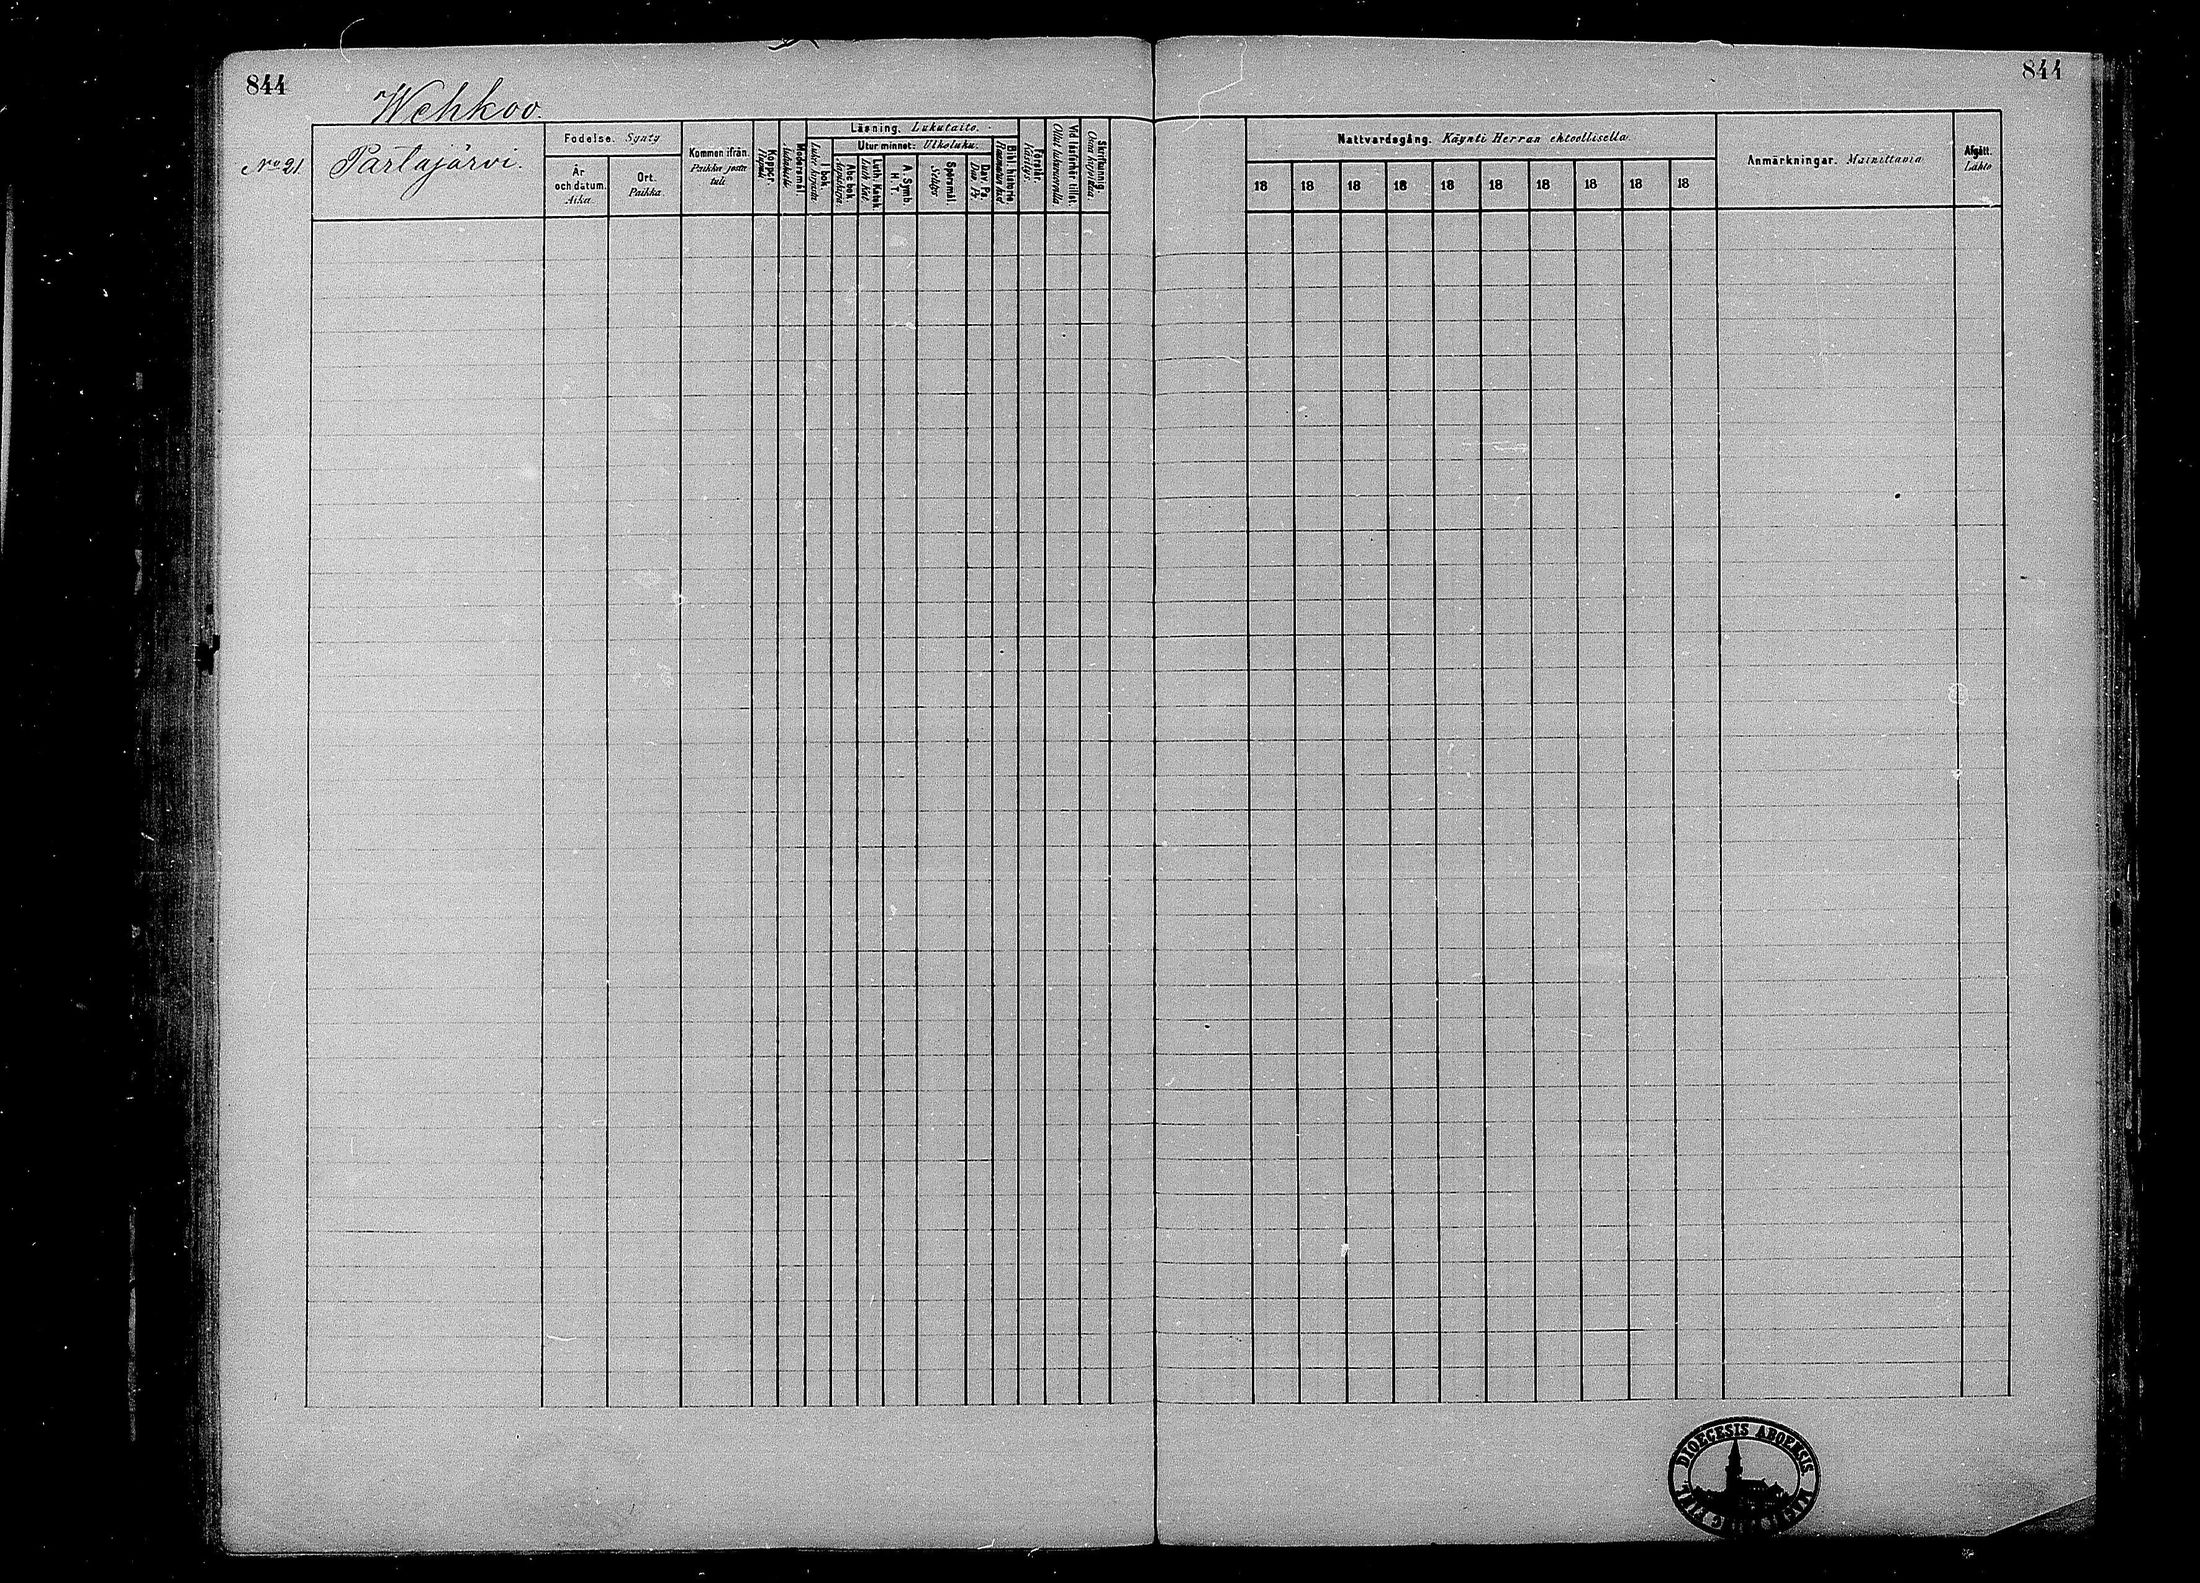 844
844
Wehkoo.
No 21. Partajärvi.
Födelse. Synty
År och datum. Aika.
Ort. Paikka.
Kommen ifrån. Paikka josta tuli
Koppor.
Modersmål.
Läsning. Lukutaito.
I bok.
Utur minnet: Ulkoluku.
Abc bok.
Luth. Katek.
A. Symb. H. T.
Spörsmål.
Dav. Ps.
Bibl. historia.
Förstår. Käsitys.
Vid läsförhör tillst.
Skriftkunnig.
Nattvardsgång. Käynti Herran ehtoollisella.
18 18 18 18 18 18 18 18 18 18
Anmärkningar. Mainittavia
Afgått. Lähtö
DIOECESIS ABOENSIS